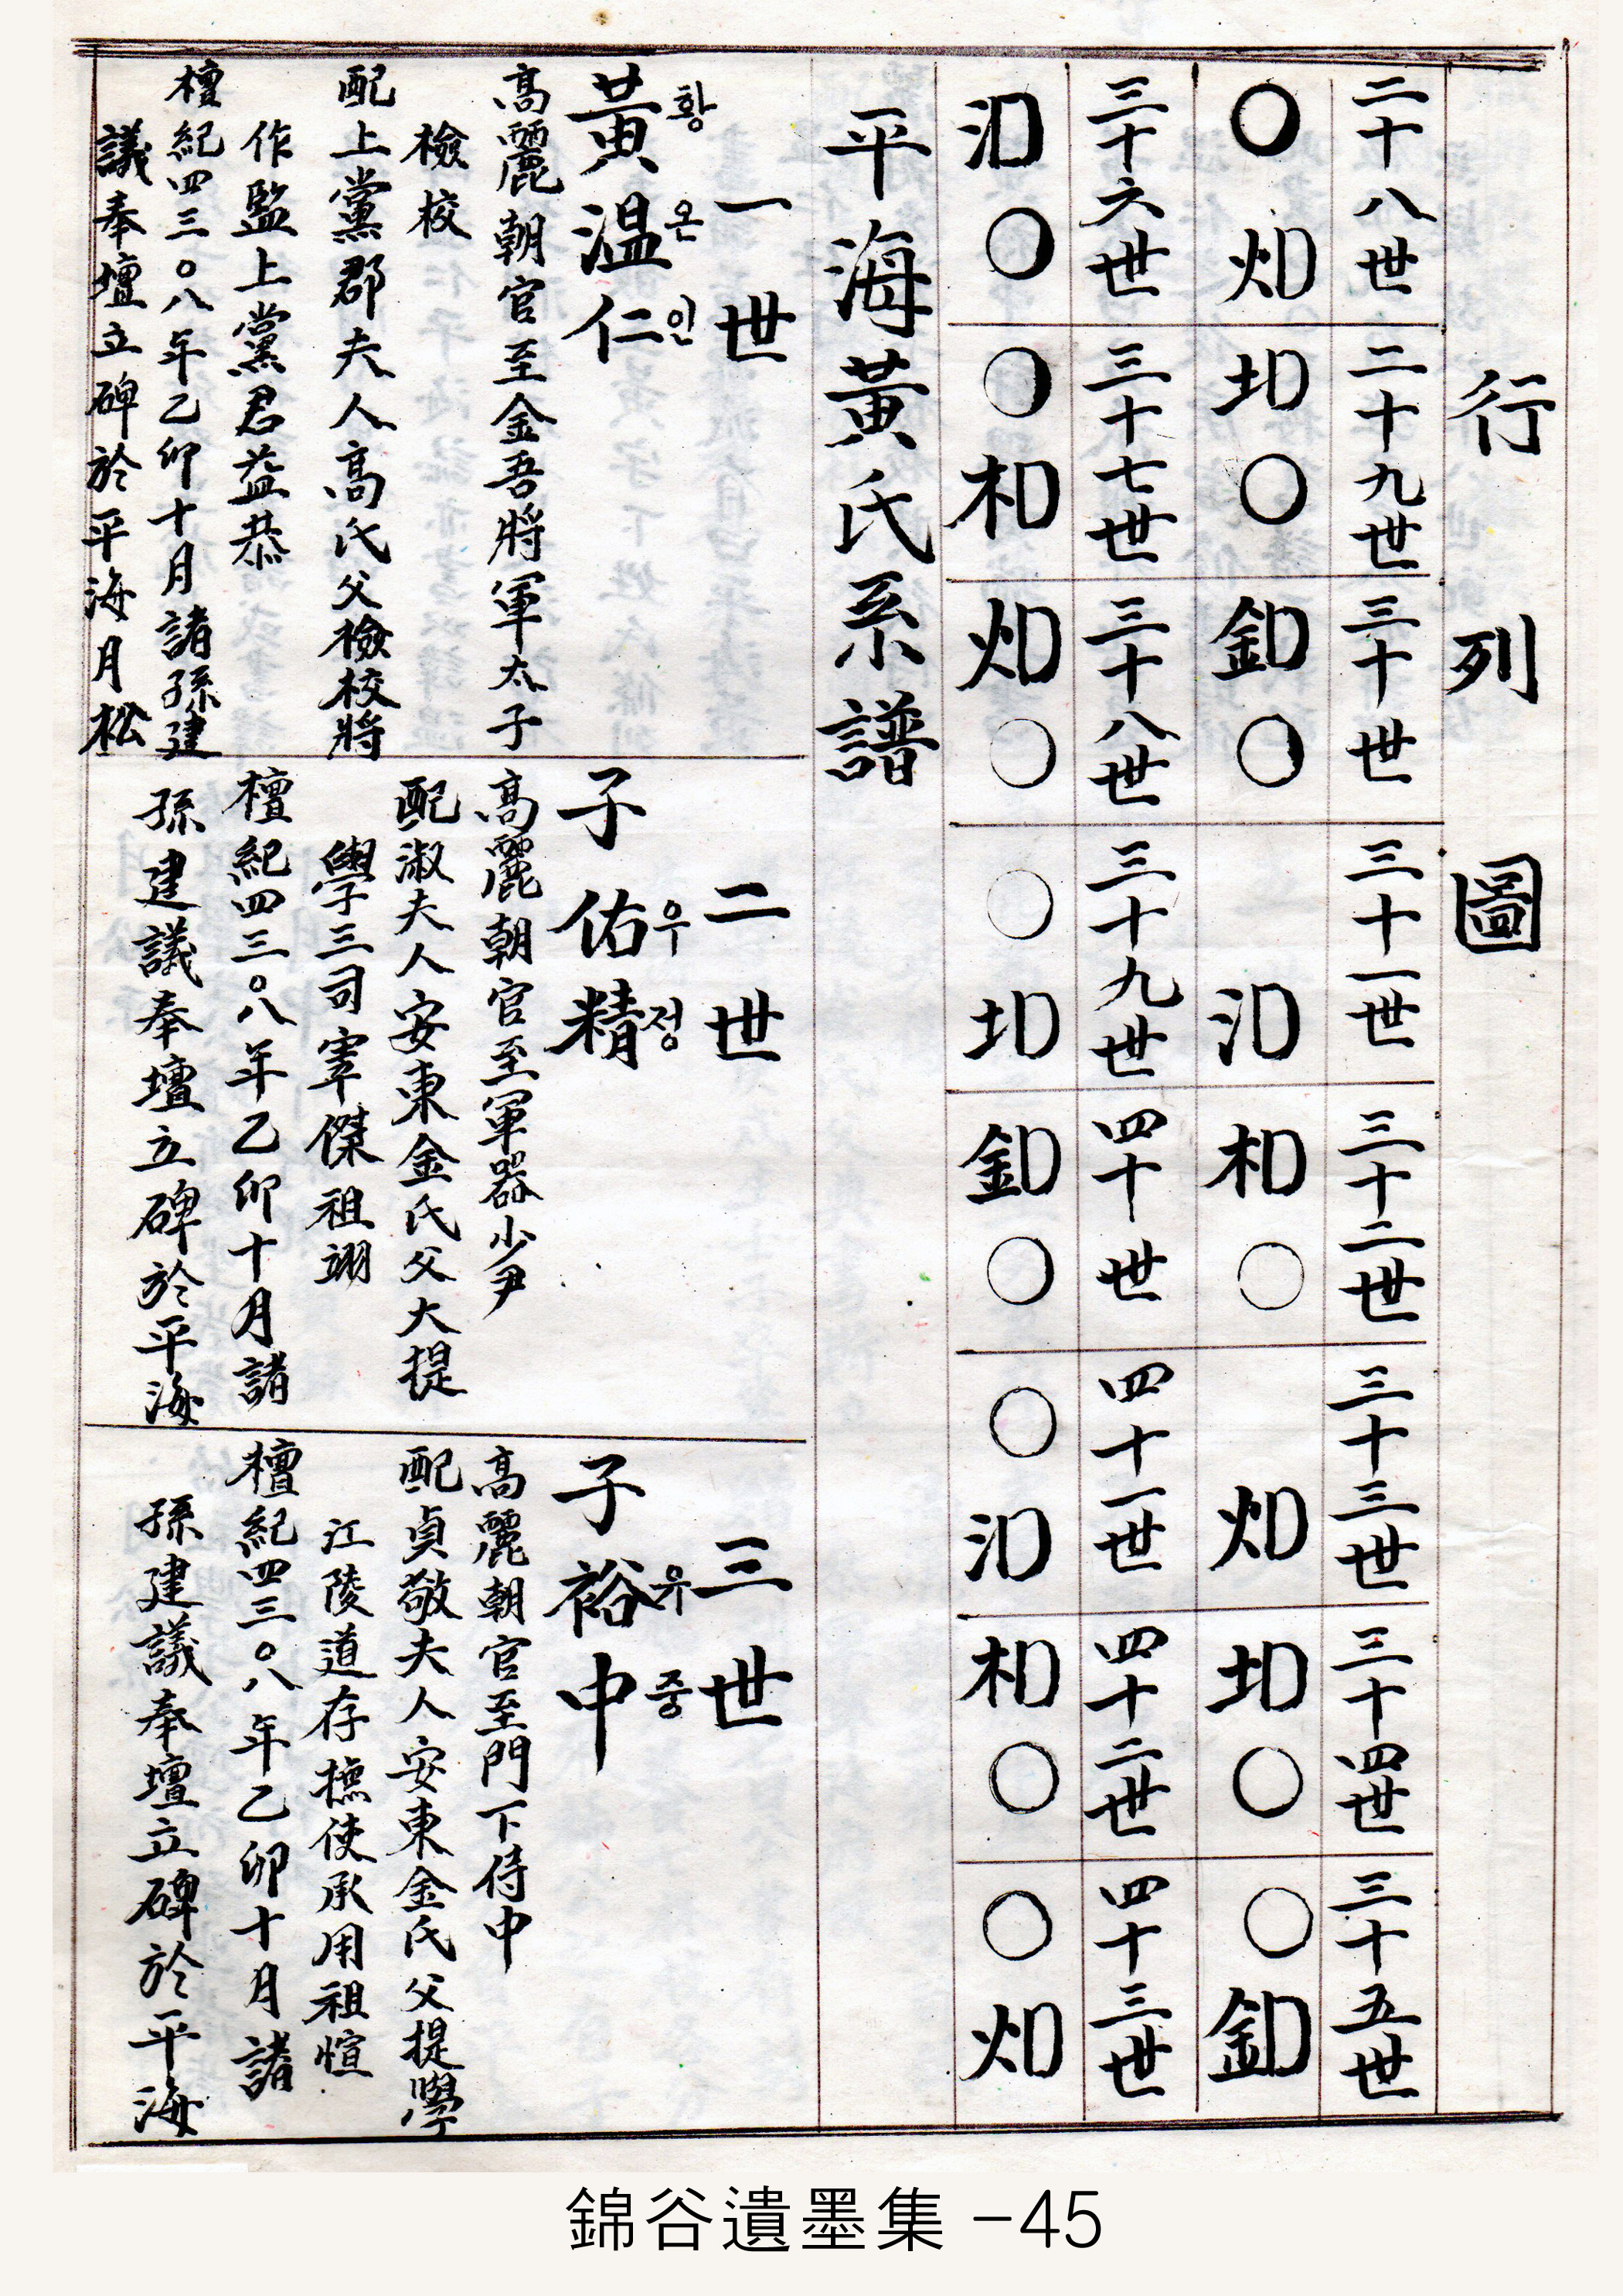 行列圖
二十八世
二十九世
三十世
三十一世
三十二世
三十三世
三十四世
三十五世
〇 火卩
土卩 〇
金卩 〇
氵卩
木卩 〇
火卩
土卩 〇
〇 金卩
三十六世
三十七世
三十八世
三十九世
四十世
四十一世
四十二世
四十三世
氵卩 〇
〇 木卩
火卩 〇
〇 土卩
金卩 〇
〇 氵卩
木卩 〇
〇 火卩
平海黃氏系譜
一世
黃溫仁
황온인
高麗朝官至金吾將軍太子
檢校
配上黨郡夫人高氏父檢校將
作監上黨君益恭
檀紀四三〇八年乙卯十月諸孫建
議奉壇立碑於平海月松
二世
子佑精
우정
高麗朝官至軍器少尹
配淑夫人安東金氏父大提
學三司宰傑祖翊
檀紀四三〇八年乙卯十月諸
孫建議奉壇立碑於平海
三世
子裕中
유중
高麗朝官至門下侍中
配貞敬夫人安東金氏父提學
江陵道存撫使承用祖愃
檀紀四三〇八年乙卯十月諸
孫建議奉壇立碑於平海
錦谷遺墨集 -45